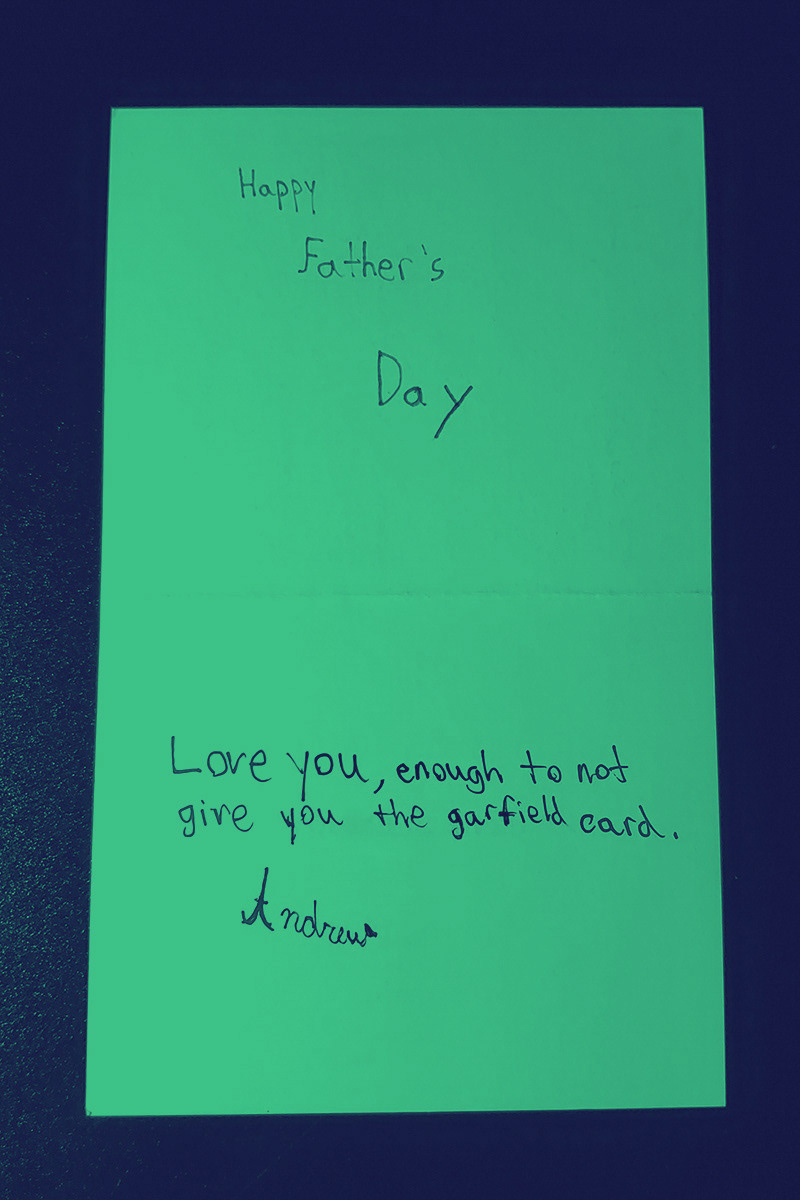 Happy
Father's
Day
Love you, enough to not
give you the garfield card.
Andrew